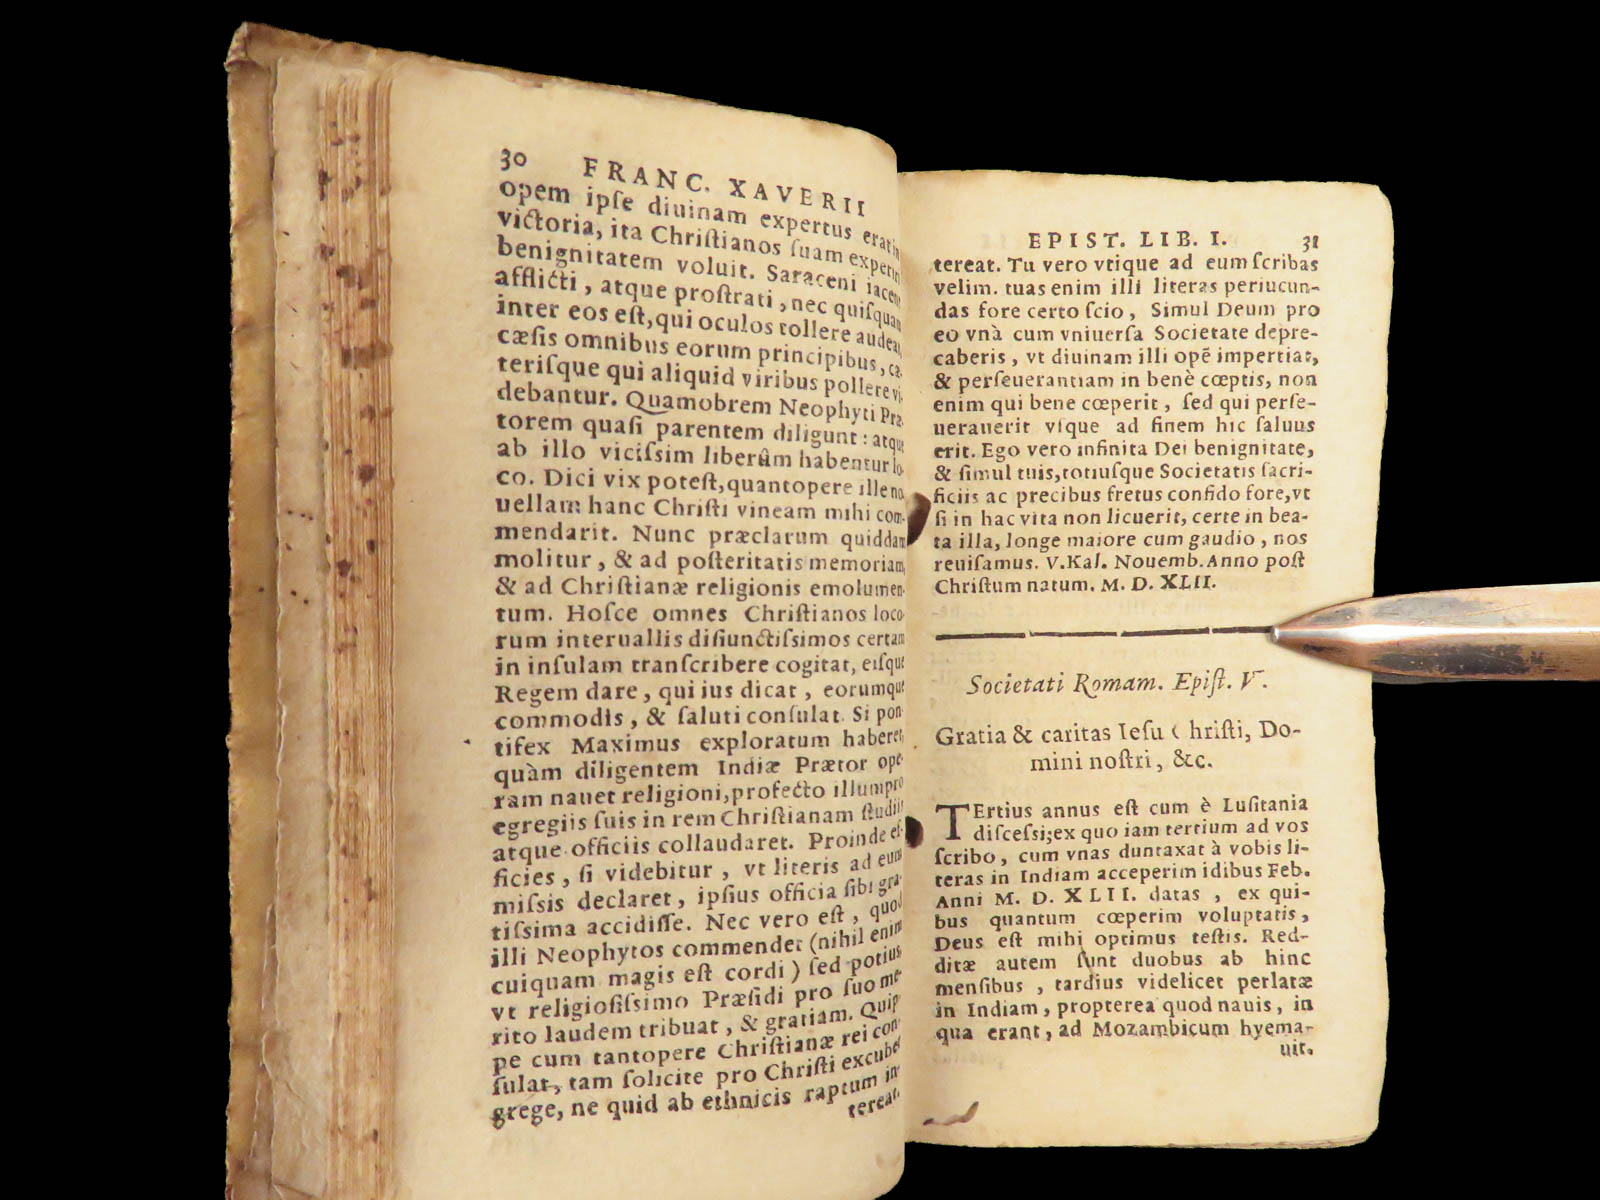 30 FRANC. XAVERII
opem ipſe diuinam expertus erat in
victoria, ita Chriſtianos ſuam experiri
benignitatem voluit. Saraceni iacent
afflicti, atque proſtrati, nec quiſquam
inter eos eſt, qui oculos tollere audeat,
cæſis omnibus eorum principibus, cæ-
teriſque qui aliquid viribus pollere vi-
debantur. Quamobrem Neophyti Præ-
torem quaſi parentem diligunt: atque
ab illo viciſsim liberûm habentur lo-
co. Dici vix poteſt, quantopere ille no-
uellam hanc Chriſti vineam mihi com-
mendarit. Nunc præclarum quiddam
molitur, & ad poſteritatis memoriam,
& ad Chriſtianæ religionis emolumen-
tum. Hoſce omnes Chriſtianos loco-
rum interuallis diſiunctiſsimos certam
in inſulam tranſcribere cogitat, eiſque
Regem dare, qui ius dicat, eorumque
commodis, & ſaluti conſulat. Si pon-
tifex Maximus exploratum haberet,
quàm diligentem Indiæ Prætor ope-
ram nauet religioni, profecto illum pro
egregiis ſuis in rem Chriſtianam ſtudiis
atque officiis collaudaret. Proinde ef-
ficies, ſi videbitur, vt literis ad eum
miſsis declaret, ipſius officia ſibi gra-
tiſsima accidiſſe. Nec vero eſt, quod
illi Neophytos commendet (nihil enim
cuiquam magis eſt cordi) ſed potius
vt religioſiſsimo Præſidi pro ſuo me-
rito laudem tribuat, & gratiam. Quip-
pe cum tantopere Chriſtianæ rei con-
ſulat, tam ſolicite pro Chriſti excubet
grege, ne quid ab ethnicis raptum in-
tereat.
EPIST. LIB. I. 31
tereat. Tu vero vtique ad eum ſcribas
velim. tuas enim illi literas periucun-
das fore certo ſcio, Simul Deum pro
eo vnà cum vniuerſa Societate depre-
caberis, vt diuinam illi opē impertiat,
& perſeuerantiam in benè cœptis, non
enim qui bene cœperit, ſed qui perſe-
uerauerit vſque ad finem hic ſaluus
erit. Ego vero infinita Dei benignitate,
& ſimul tuis, totiuſque Societatis ſacri-
ficiis ac precibus fretus confido fore, vt
ſi in hac vita non licuerit, certe in bea-
ta illa, longe maiore cum gaudio, nos
reuiſamus. V. Kal. Nouemb. Anno poſt
Chriſtum natum. M. D. XLII.
Societati Romam. Epiſt. V.
Gratia & caritas Ieſu Chriſti, Do-
mini noſtri, &c.
TErtius annus eſt cum è Luſitania
diſceſsi; ex quo iam tertium ad vos
ſcribo, cum vnas duntaxat à vobis li-
teras in Indiam acceperim idibus Feb.
Anni M. D. XLII. datas, ex qui-
bus quantum cœperim voluptatis,
Deus eſt mihi optimus teſtis. Red-
ditæ autem ſunt duobus ab hinc
menſibus, tardius videlicet perlatæ
in Indiam, propterea quod nauis, in
qua erant, ad Mozambicum hyema-
uit.